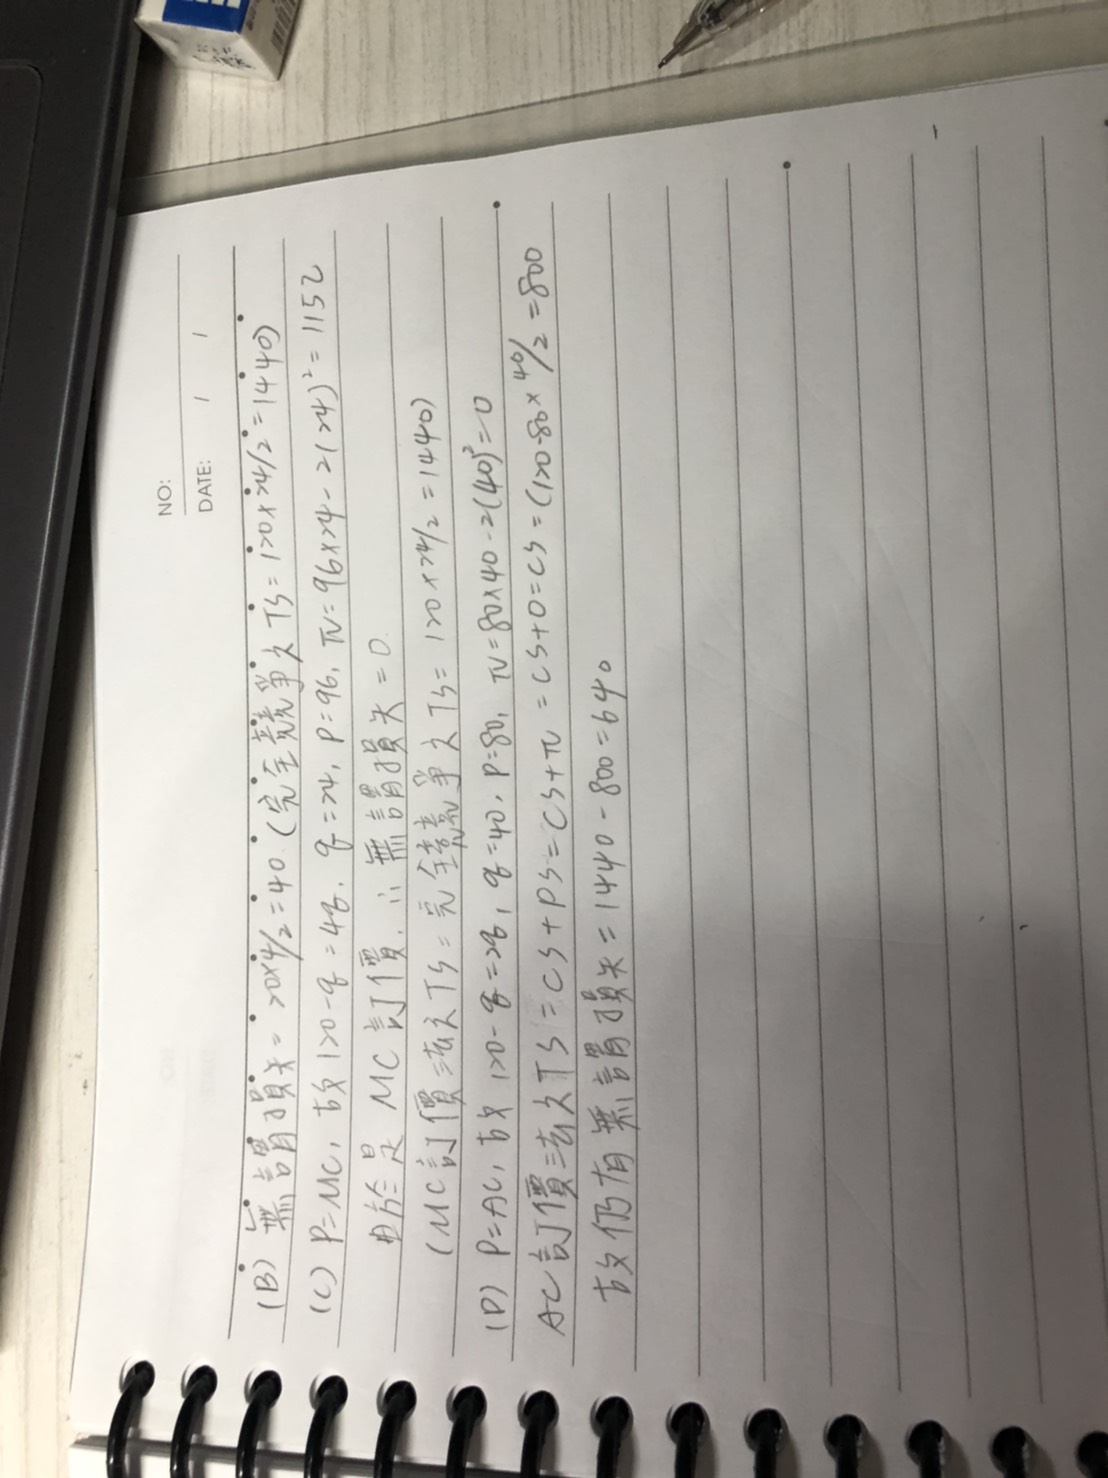 NO:
DATE: / /
(B) 無謂損失 = 20×4/2 = 40 (完全競爭之TS = 120×24/2 = 1440)
(C) P=MC, 故 120-q = 4q, q=24, P=96, π = 96×24 - 2(24)² = 1152
由於是 MC 訂價, ∴ 無謂損失 = 0
(MC訂價法之TS = 完全競爭之TS = 120×24/2 = 1440)
(D) P=AC, 故 120-q=2q, q=40, P=80, π=80×40-2(40)²=0
AC訂價法之TS = CS+PS = CS+π = CS+0=CS = (120-80×40/2 = 800
故仍有無謂損失 = 1440-800=640